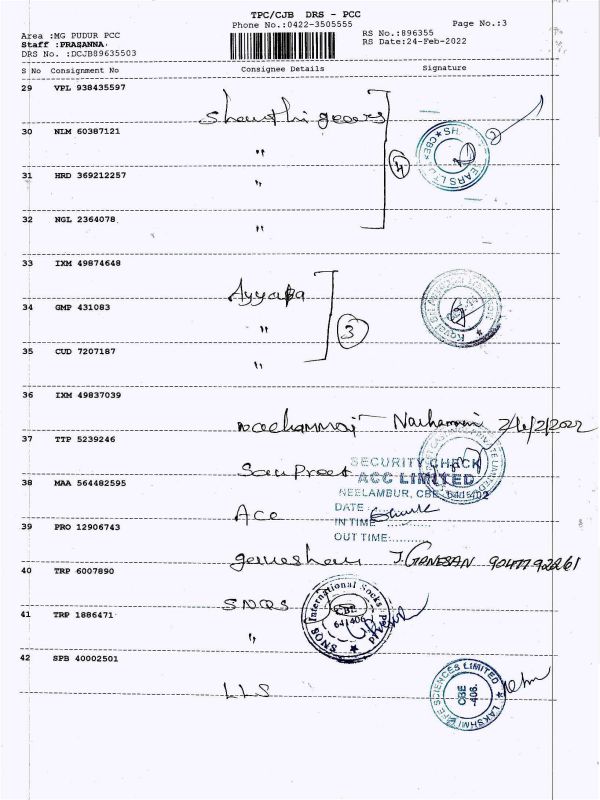 TPC/CJB DRS - PCC
Phone No.:0422-3505555 Page No.:3
Area :MG PUDUR PCC RS No.:896355
Staff :PRASANNA. RS Date:24-Feb-2022
DRS No. :DCJB89635503
S No Consignment No Consignee Details Signature
29 VPL 938435597
Shanthi gears
30 NLM 60387121
"
31 HRD 369212257 4
"
32 NGL 2364078
"
33 IXM 49874648
Ayyappa
34 GMP 431083
" 3
35 CUD 7207187
"
36 IXM 49837039
Nachammai
37 TTP 5239246
SECURITY CHECK
38 MAA 564482595 ACC LIMITED
NEELAMBUR, CBE-641 402
DATE :
Acc IN TIME
39 PRO 12906743 OUT TIME:
J. GANESAN
40 TRP 6007890
SNQS
SNQS International Socks
CBE
641406
41 TRP 1886471
"
42 SPB 40002501
LLS
LAKSHMI LIFE SCIENCES LIMITED
CBE
-406.